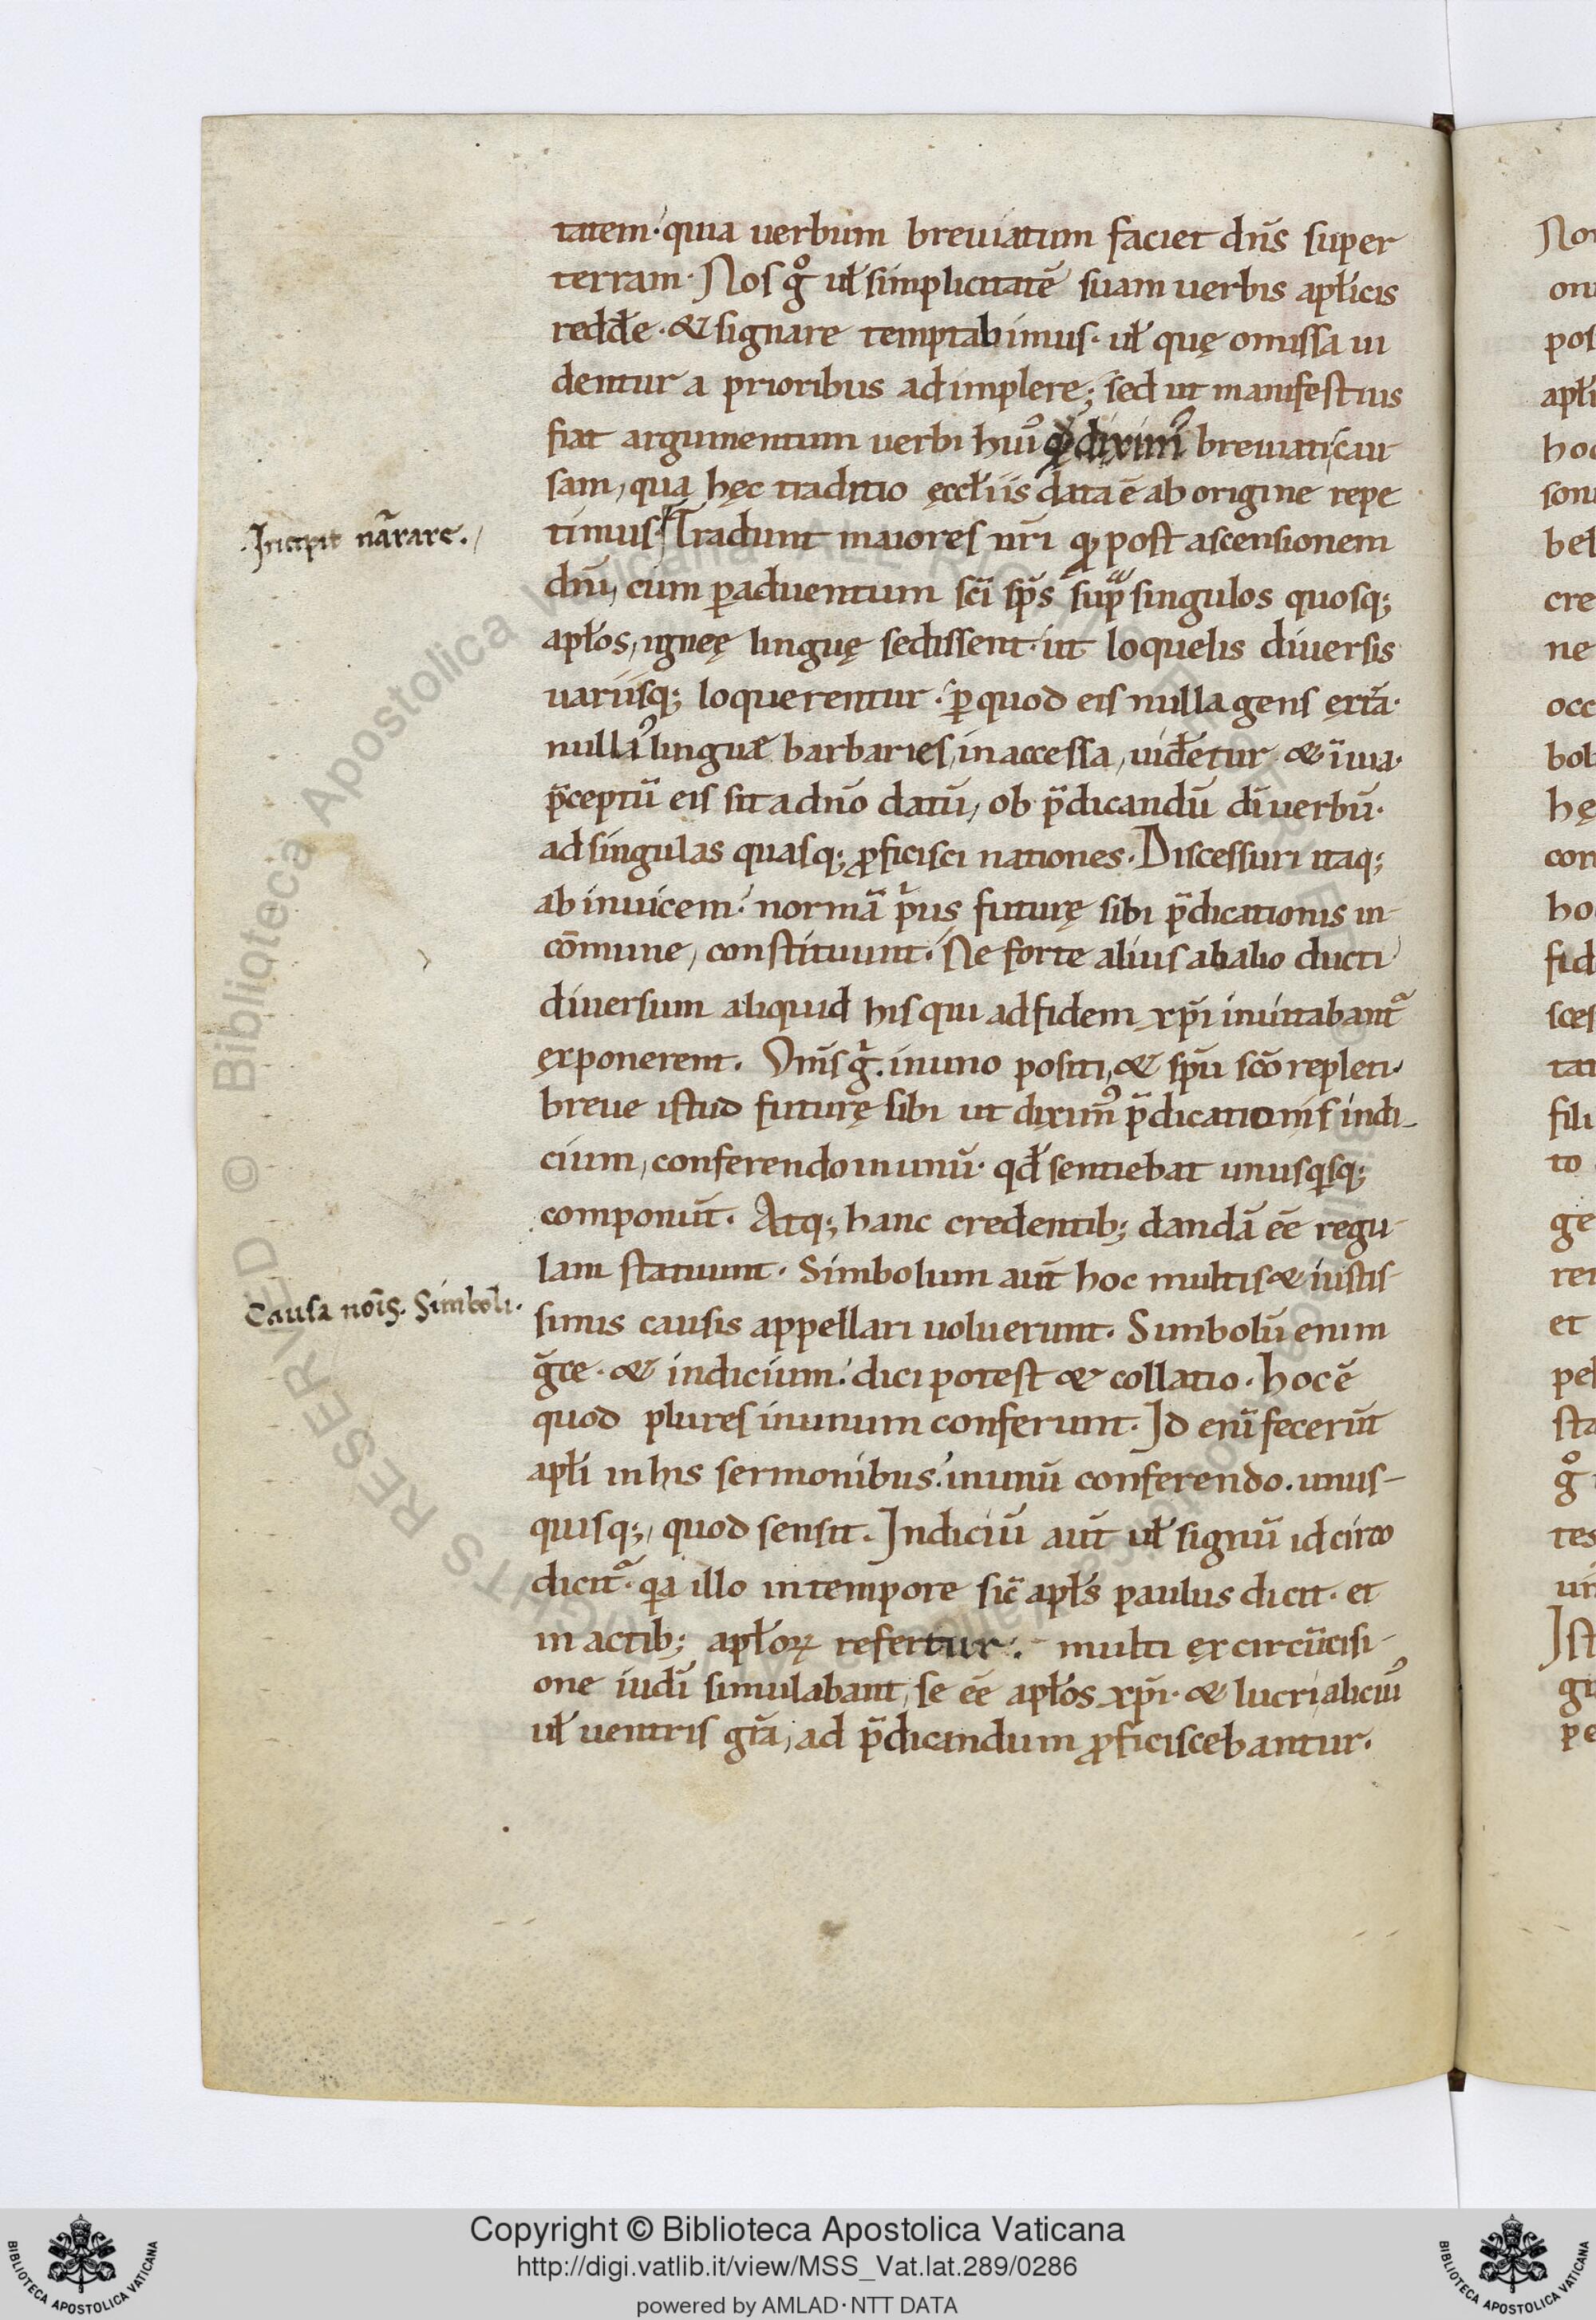 tatem· quia uerbum breuiatum faciet dn̄s super
terram· Nos gͦ uł simplicitatē suam uerbis apłicis
redde̅· & signare temptabimus· uł quę omissa ui
dentur a prioribus adimplere; sed ut manifestius
fiat argumentum uerbi huiꝰ qđ diximꝰ breuiati, cau-
sam, qua hęc traditio ęccłiis data ē ab origine repe
timus; Tradunt maiores nr̄i qđ post ascensionem
dn̄i, cum ꝑ aduentum sc̄i sp̄s sup̄ singulos quosq;
apłos, igneę linguę sedissent· ut loquelis diuersis
uariisq; loquerentur· ꝑ quod eis nulla gens ext̄ra·
nulla linguæ barbaries, inaccessa, uiđetur & inuia·
p̄ceptū eis sit a dn̄o datū, ob p̄dicandū dī uerbū·
ad singulas quasq; ꝓficisci nationes· Discessuri itaq;
ab inuicem· normā prius futurę sibi p̄dicationis in-
cōmune, constituunt· Ne forte alius ab alio ducti
diuersum aliquid his qui ad fidem xp̄i inuitabant
exponerent. Om̄s g̓· in uno positi, & sp̄u sc̄o repleti·
breue istud futurę sibi ut diximꝰ p̄dicationis indi-
cium, conferendo in unū· qđ sentiebat unusqsq;
componūt. Atq; hanc credentib; dandā ēē regu-
lam statuunt. Simbolum aūt hoc multis & iustis-
simis causis appellari uoluerunt. Simbolū enim
ḡce· & indicium· dici potest & collatio. hoc ē
quod plures in unum conferunt. Id eni̅ fecerūt
apłi in his sermonibus· in unū conferendo. unus-
quisq;, quod sensit. Indiciū aūt uł signū idcirco
dicit· qa illo in tempore sic̄ apłs paulus dicit· et
in actib; apłoꝝ refertur·- multi ex circūcisi-
one iud̄i simulabant, se ēē apłos xp̄i· & lucri alicuiꝰ
uł uentris gr̄a, ad p̄dicandum ꝓficiscebantur.
·Incipit nārare.
Causa nōīs. Simboli.
Copyright © Biblioteca Apostolica Vaticana
http://digi.vatlib.it/view/MSS_Vat.lat.289/0286
powered by AMLAD·NTT DATA
BIBLIOTECA APOSTOLICA VATICANA
BIBLIOTECA APOSTOLICA VATICANA